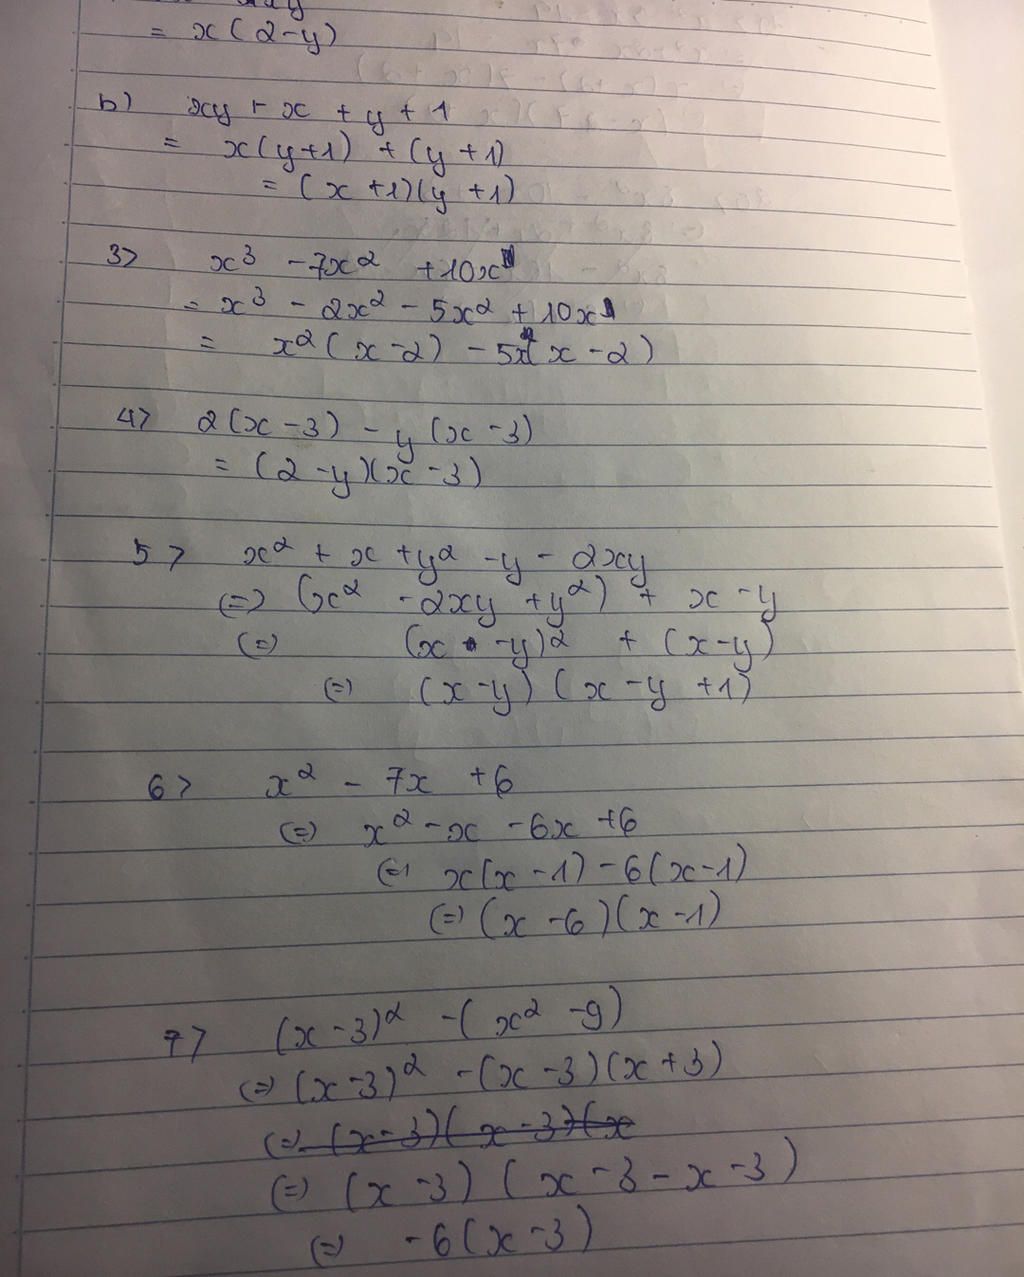 = x(2-y)
b) xy + x + y + 1
= x(y+1) + (y+1)
= (x+1)(y+1)
3> x³ - 7x² + 10x
= x³ - 2x² - 5x² + 10x
= x²(x-2) - 5x(x-2)
4> 2(x-3) - y(x-3)
= (2-y)(x-3)
5> x² + x + y² - y - 2xy
(=) (x² - 2xy + y²) + x - y
(=) (x - y)² + (x-y)
(=) (x-y)(x-y+1)
6> x² - 7x + 6
(=) x² - x - 6x + 6
(=) x(x-1) - 6(x-1)
(=) (x-6)(x-1)
7> (x-3)² - (x² - 9)
(=) (x-3)² - (x-3)(x+3)
(=) (x-3)(x-3)(x
(=) (x-3)(x-3-x-3)
(=) -6(x-3)